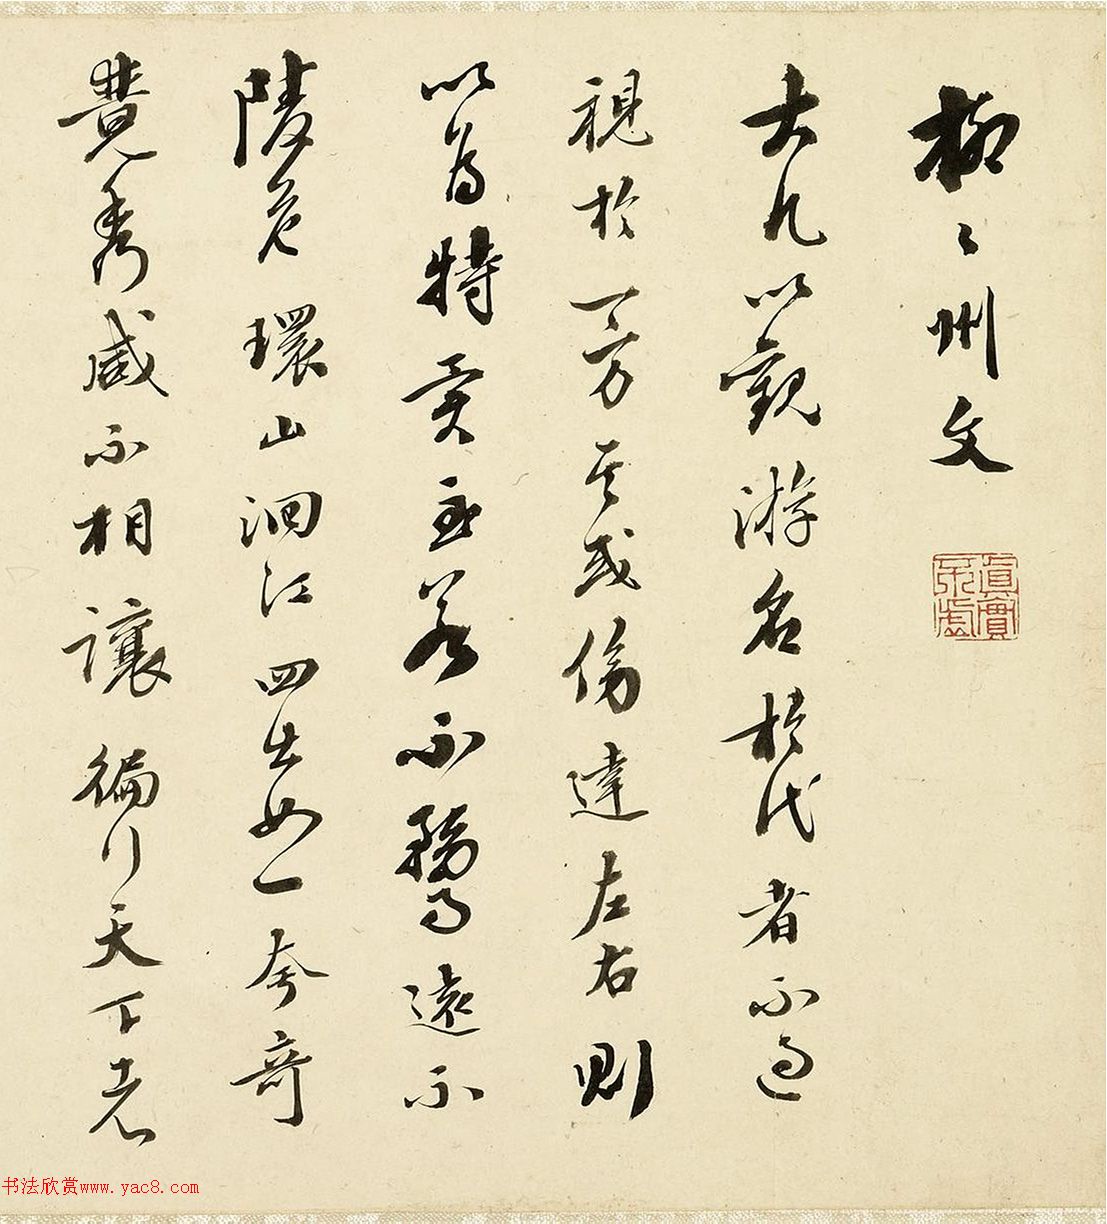 柳〻州文
眞實不虛
大凡以觀游名於代者不過
視於一方其或傍達左右則
以為特異至若不騖遠不
陵危環山洄江四出如一夸奇
競秀咸不相讓徧行天下者
书法欣赏www.yac8.com